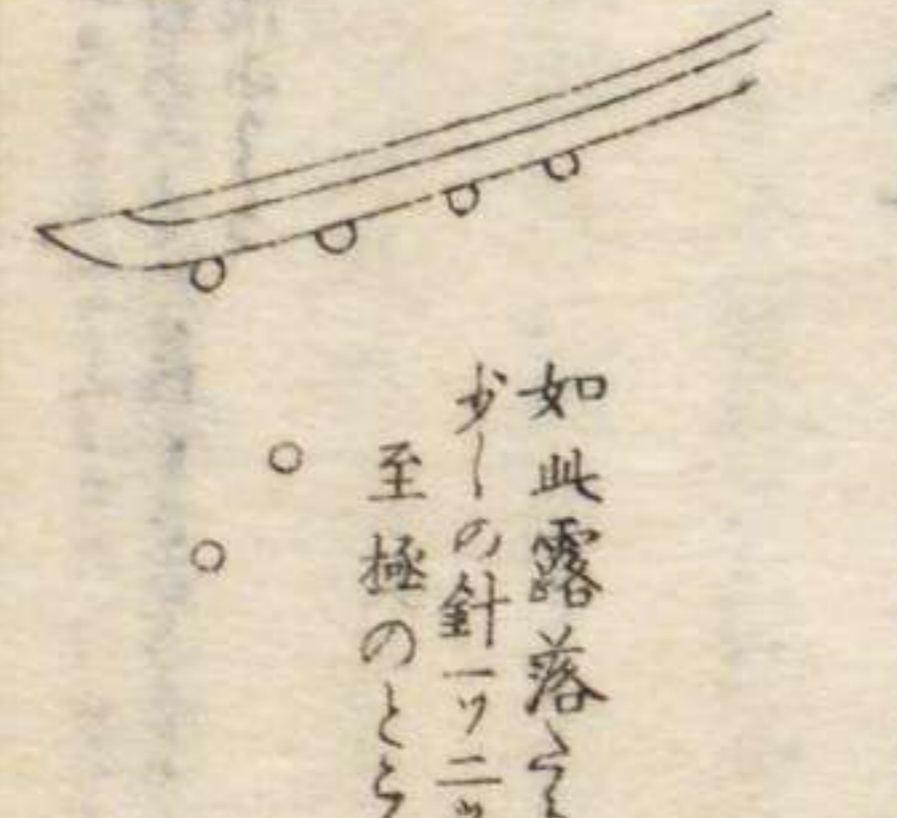 如此露落たる
少しの針一ツ二ツ
至極のところ